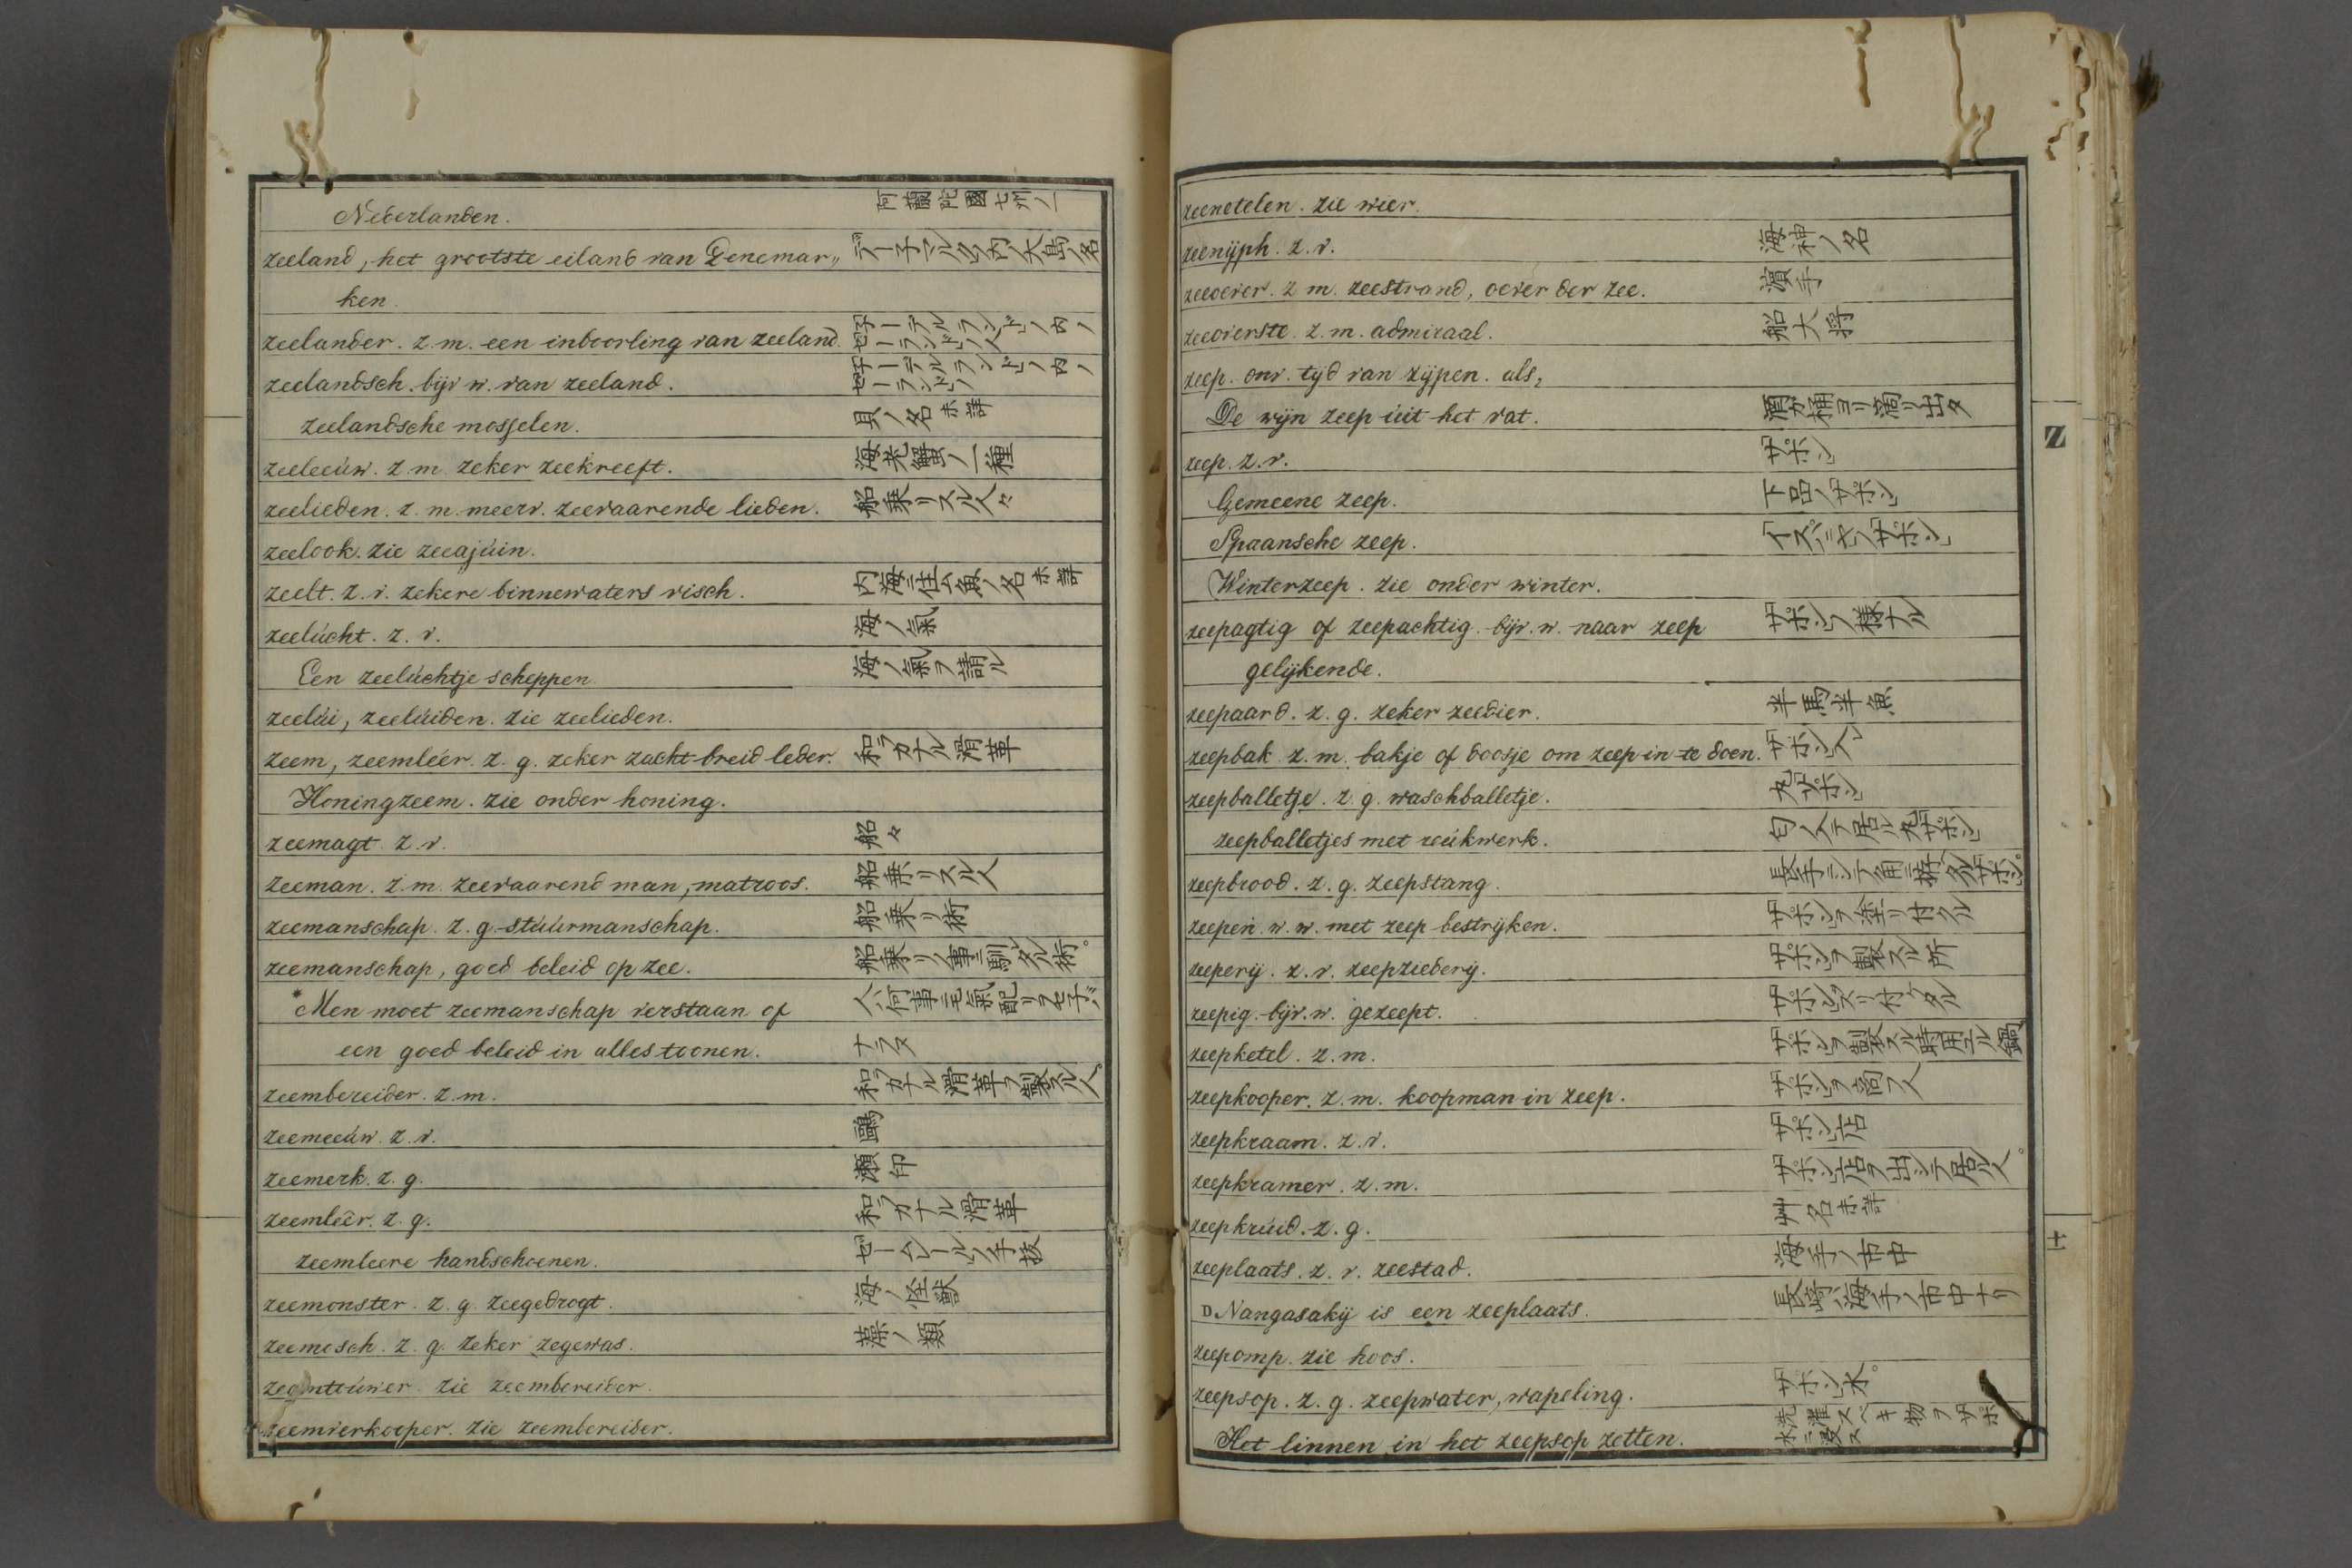 Nederlanden. 阿蘭陀國七州ノ一
zeeland, het grootste eiland van Denemar„ デー子マルク内ノ大島ノ名
ken.
zeelander. z. m. een inboorling van zeeland. 子ーデルランド内ノゼーランドノ人
zeelandsch. bijv w. van zeeland. 子ーデルランド内ノゼーランドノ
zeelandsche mosselen. 貝ノ名未詳
zeeleeúw. z. m. zeker zeekreeft. 海老蟹ノ一種
zeelieden. z. m. meerv. zeevaarende lieden. 船乗リスル人々
zeelook. zie zeeajúin.
zeelt. z. v. zekere binnewaters visch. 内海ニ住ム魚ノ名未詳
zeelúcht. z. v. 海ノ氣
Een zeelúchtje scheppen. 海ノ氣ヲ請ル
zeelúi, zeelúiden. zie zeelieden.
zeem, zeemléér. z. g. zeker zacht breid leder. 和ラカナル滑革
Honingzeem. zie onder honing.
zeemagt. z. v. 船々
zeeman. z. m. zeevaarend man, matroos. 船乗リスル人
zeemanschap. z. g. stúúrmanschap. 船乗リ術
zeemanschap, goed beleid op zee. 船乗リノ事ニ馴タル術。
*Men moet zeemanschap verstaan of 人ハ何事ニモ氣配リヲセ子バ
een goed beleid in alles toonen. ナラヌ
zeembereider. z. m. 和ラカナル滑革ヲ製スル人。
zeemeeúw. z. v. 鷗
zeemerk. z. g. 瀬印
zeemleêr. z. g. 和ラカナル滑革
zeemleere handschoenen. ゼームレールノ手袋
zeemonster. z. g. zeegedrogt. 海ノ怪獣
zeemosch. z. g. zeker zegewas. 藻ノ類
zeemtoúwer zie zeembereider.
zeemverkooper. zie zeembereider.
zeenetelen. zie wier.
zeenijph. z. v. 海神ノ名
zeeoever. z m. zeestrand, oever der zee. 濱手
zeeoverste. z. m. admiraal. 船大将
zeep. onv. tijd van zijpen. als,
De wijn zeep úit het vat. 酒ガ桶ヨリ滴リ出タ
zeep. z. v. サボン
Gemeene zeep. 下品ノサボン
Spaansche zeep. イスパニヤノサボン
Winterzeep. zie onder winter.
zeepagtig of zeepachtig. bijv. w. naar zeep サボンノ様ナル
gelijkende.
zeepaard. z. g. zeker zeedier. 半馬半魚
zeepbak z. m. bakje of doosje om zeep in te doen. サボン入レ
zeepballetje. z. g. waschballetje. 丸サボン
zeepballetjes met reúkwerk. 匂ノ入テ居ル丸サボン
zeepbrood. z. g. zeepstang. 長手ニシテ角ニ拵タルサボン。
zeepen. w. w. met zeep bestrijken. サボンヲ塗リ付クル
zeeperij. z. v. zeepziederij. サボンヲ製スル所
zeepig. bijv. w. gezeept. サボンヌリ付ケタル
zeepketel. z. m. サボンヲ製スル時用ル鍋
zeepkooper. z. m. koopman in zeep. サボンヲ商フ人
zeepkraam. z. v. サボン店
zeepkramer. z. m. サボン店ヲ出シテ居ル人。
zeepkrúid. z. g. 艸名未詳
zeeplaats. z. v. zeestad. 海手ノ市中
D Nangasakij is een zeeplaats. 長崎ハ海手ノ市中ナリ
zeepomp. zie hoos.
zeepsop. z. g. zeepwater, wapeling. サボン水。
Het linnen in het zeepsop zetten. 洗濯スベキ物ヲサボン水ニ浸ス
Z